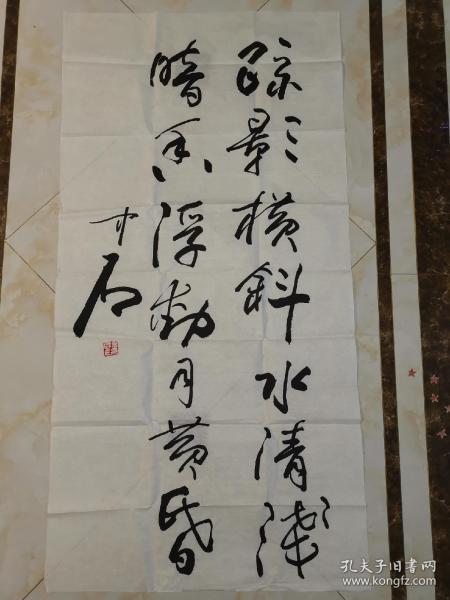 疏影横斜水清浅
暗香浮动月黄昏
中石
孔夫子旧书网
www.kongfz.com